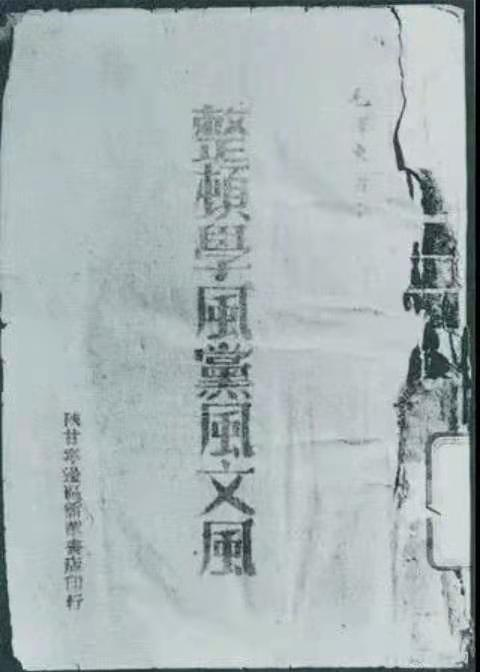 毛澤東著
整頓學風黨風文風
陝甘寧邊區新華書店印行